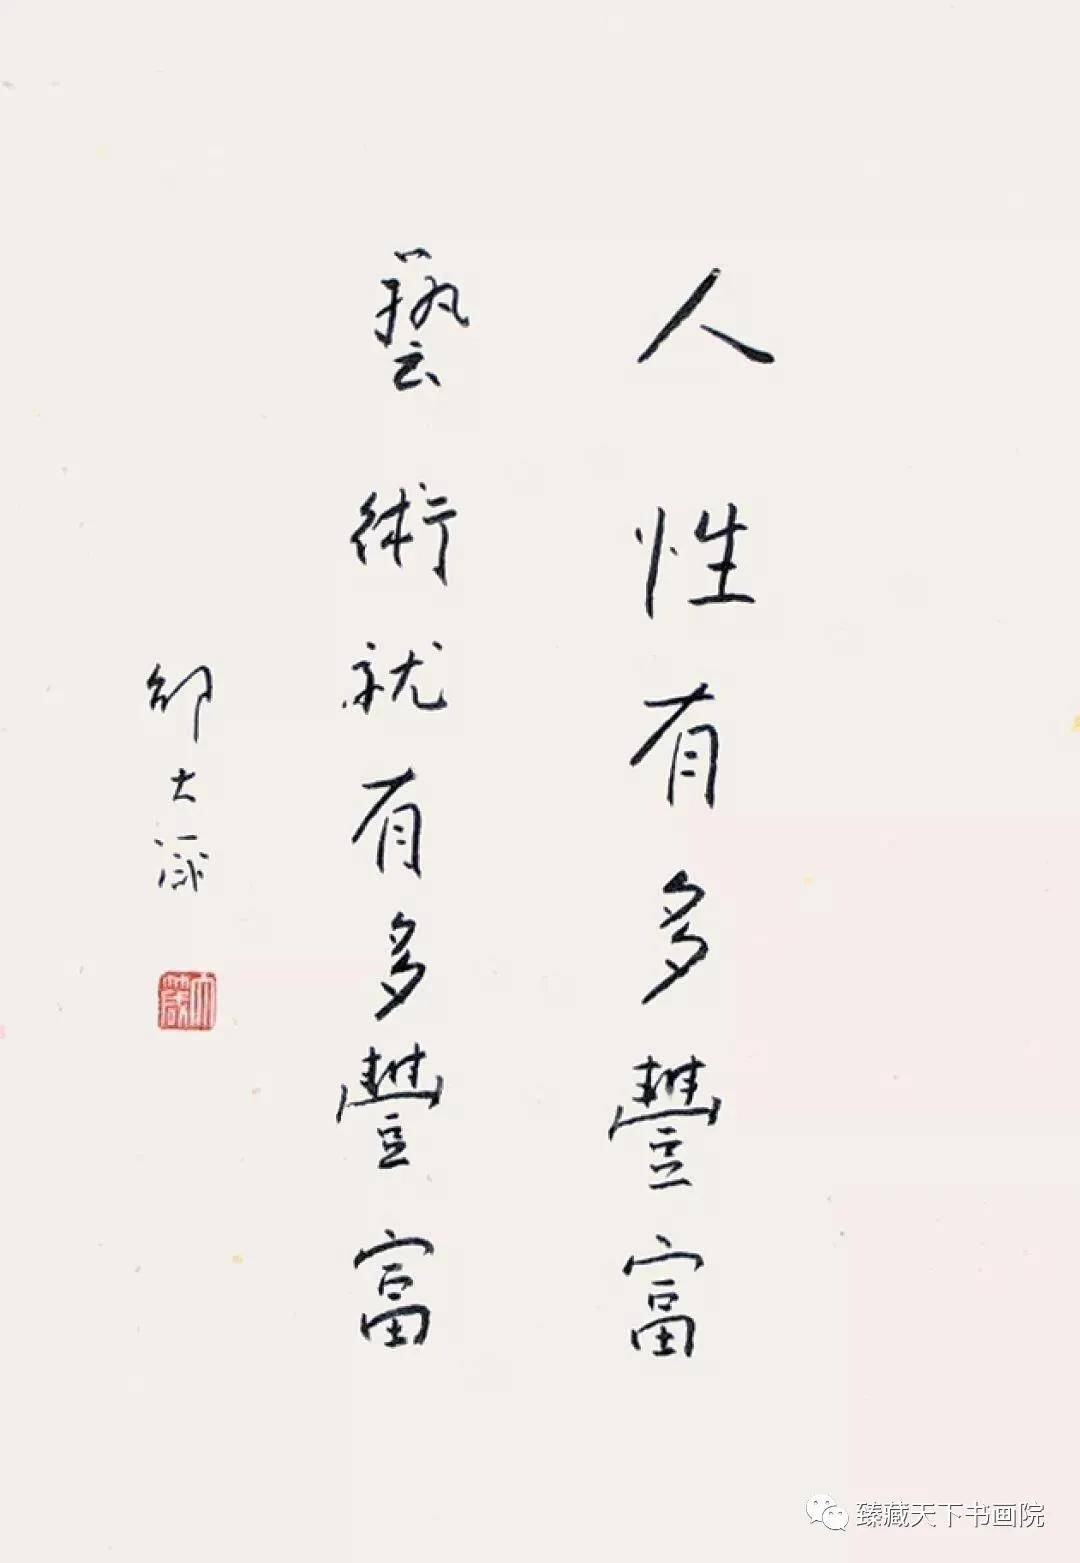 人性有多豐富
藝術就有多豐富
邵大箴
大箴
臻藏天下书画院